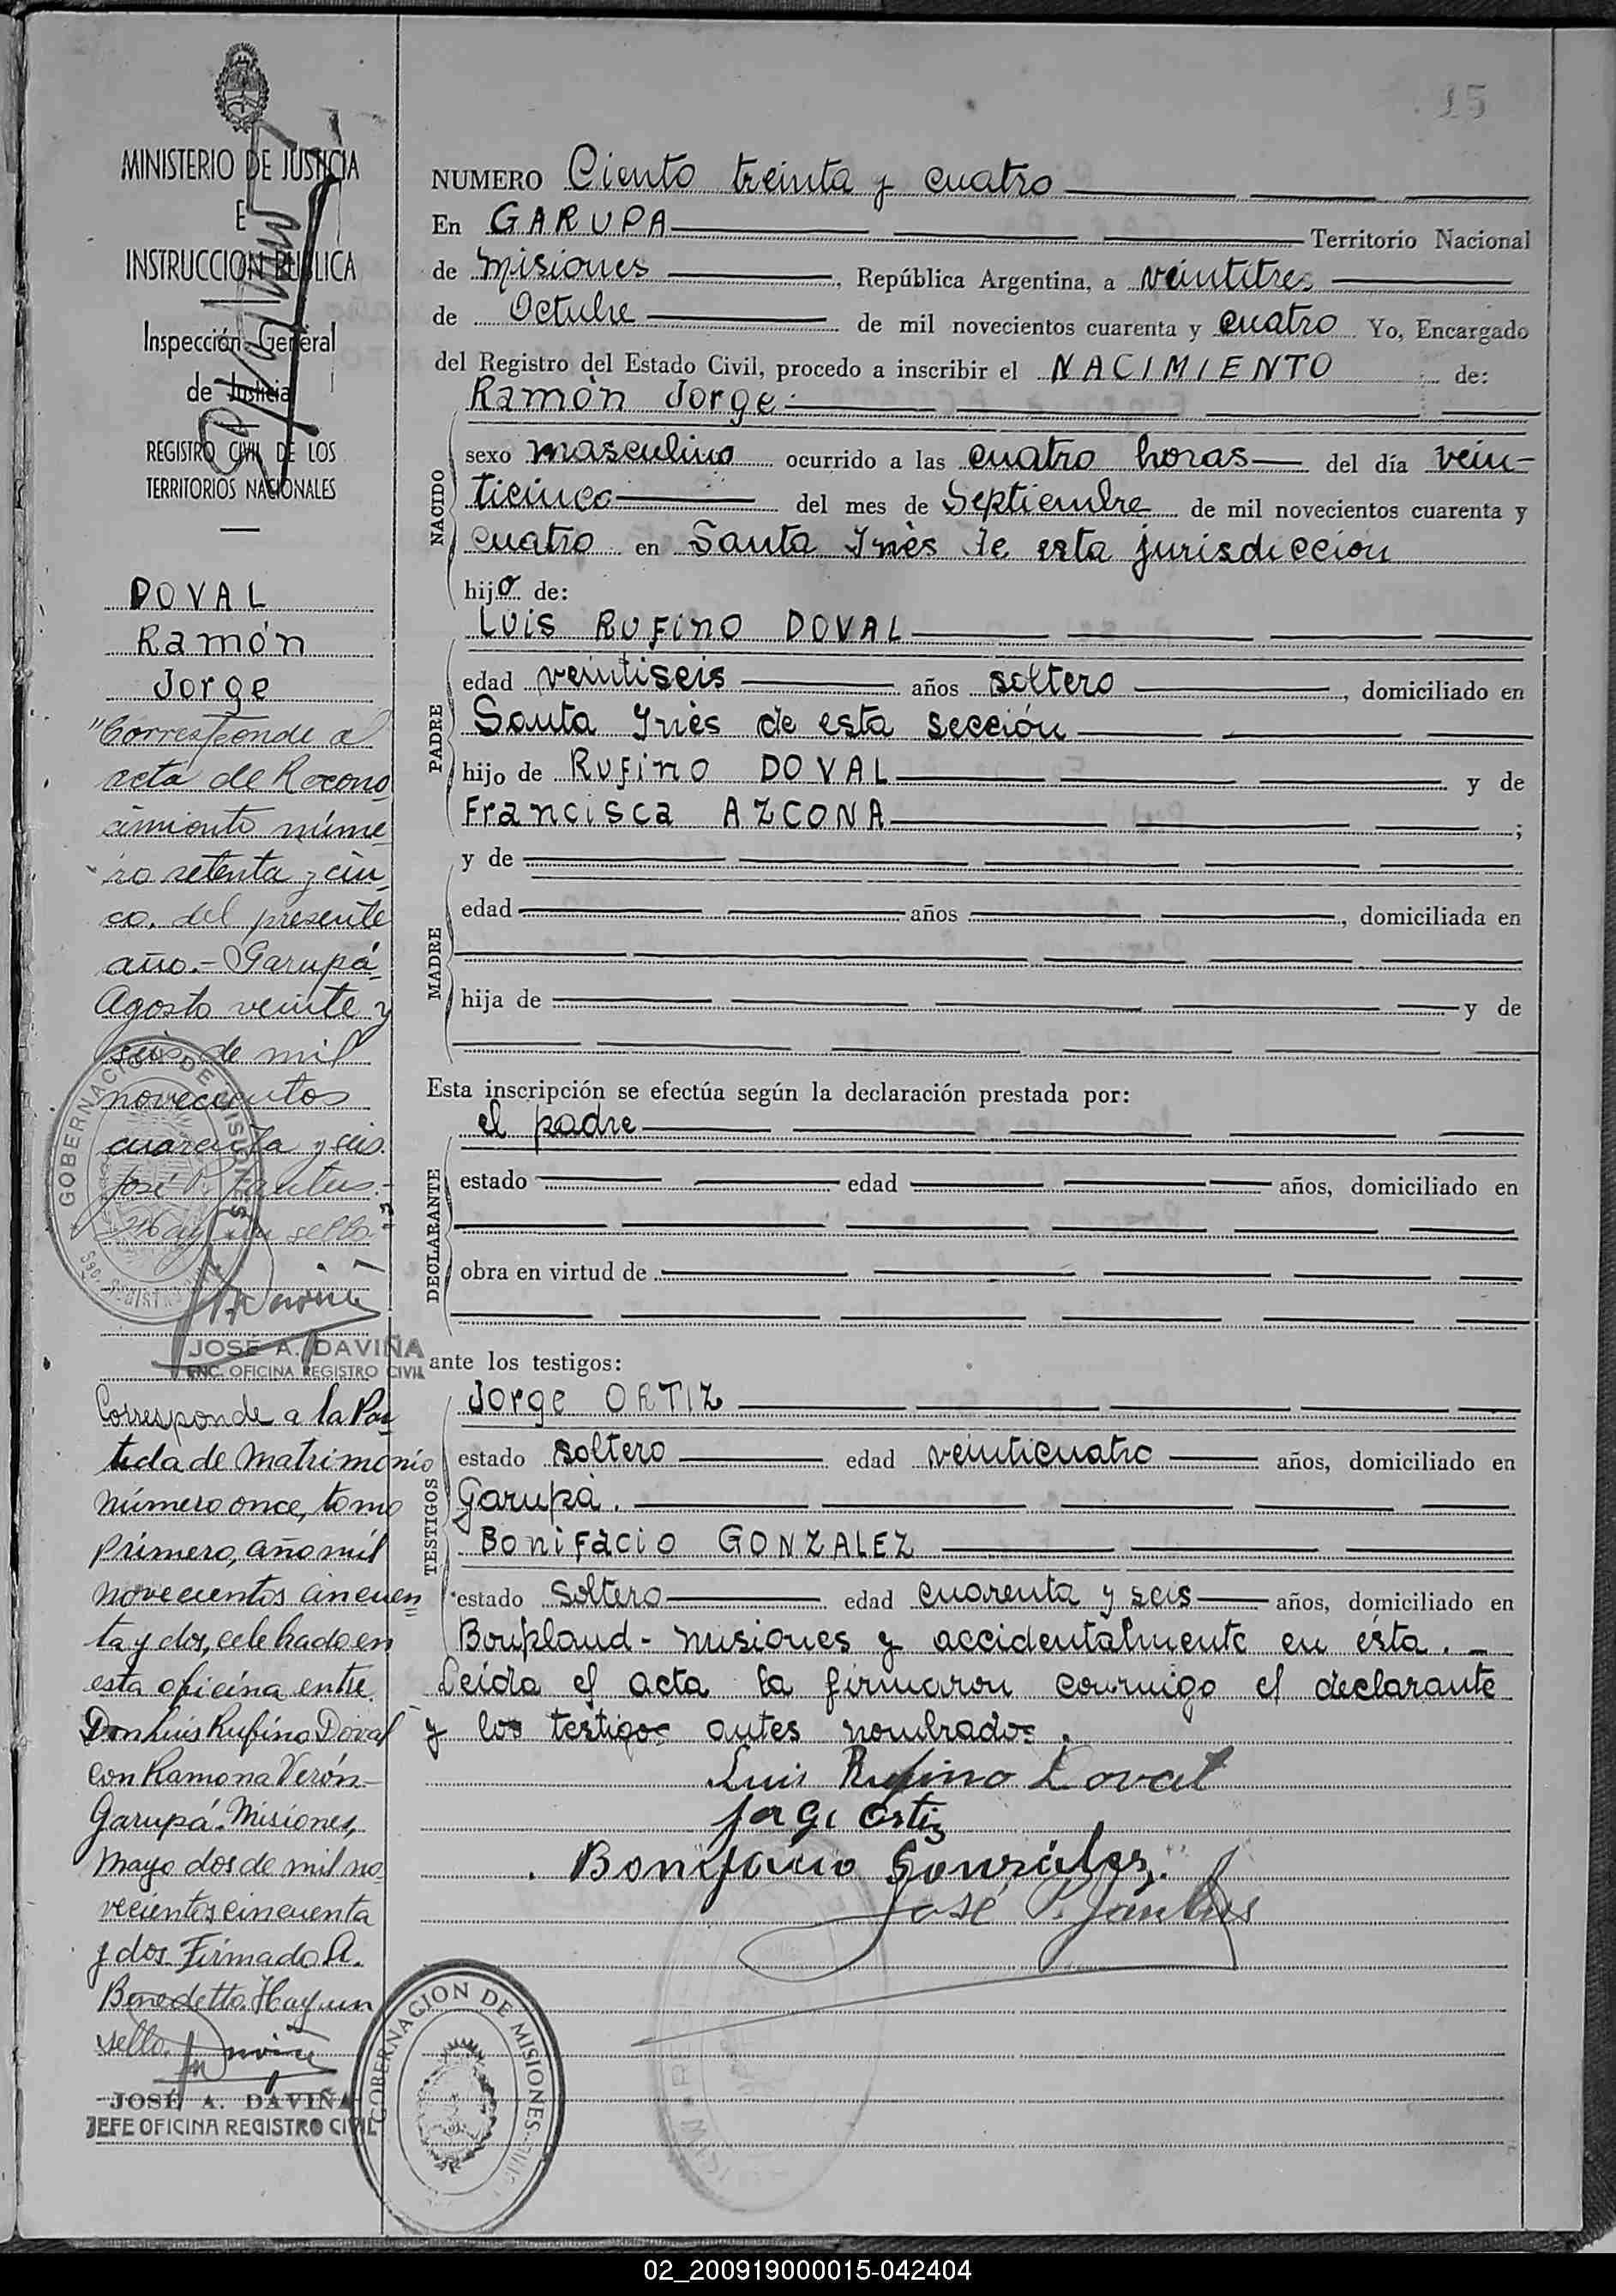 15
MINISTERIO DE JUSTICIA
E
INSTRUCCION PUBLICA
Inspección General
de Justicia
REGISTRO CIVIL DE LOS
TERRITORIOS NACIONALES
DOVAL
Ramón
Jorge
"Corresponde al
acta de Recono
cimiento núme
ro setenta y cin
co, del presente
año.- Garupá
Agosto veinte y
seis de mil
novecientos
cuarenta y seis.
José P. Jantus.-
Hay un sello."
GOBERNACION DE MISIONES
JOSÉ A. DAVIÑA
ENC. OFICINA REGISTRO CIVIL
Corresponde a la Par
tida de Matrimonio
número once, tomo
primero, año mil
novecientos cincuen
ta y dos, celebrado en
esta oficina entre
Don Luis Rufino Doval
con Ramona Verón.-
Garupá-Misiones,
Mayo dos de mil no
vecientos cincuenta
y dos. Firmado A.
Benedetto. Hay un
sello.
JOSÉ A. DAVIÑA
JEFE OFICINA REGISTRO CIVIL
NUMERO Ciento treinta y cuatro
En GARUPA Territorio Nacional
de Misiones, República Argentina, a veintitres
de Octubre de mil novecientos cuarenta y cuatro Yo, Encargado
del Registro del Estado Civil, procedo a inscribir el NACIMIENTO de:
Ramón Jorge
NACIDO
sexo masculino ocurrido a las cuatro horas del día vein-
ticinco del mes de Septiembre de mil novecientos cuarenta y
cuatro en Santa Inés de esta jurisdiccion
hijo de:
PADRE
Luis Rufino DOVAL
edad veintiseis años soltero, domiciliado en
Santa Inés de esta sección
hijo de Rufino DOVAL y de
Francisca AZCONA;
MADRE
y de
edad años, domiciliada en
hija de y de
Esta inscripción se efectúa según la declaración prestada por:
DECLARANTE
el padre
estado edad años, domiciliado en
obra en virtud de
ante los testigos:
TESTIGOS
Jorge ORTIZ
estado soltero edad veinticuatro años, domiciliado en
Garupá.
Bonifacio GONZALEZ
estado soltero edad cuarenta y seis años, domiciliado en
Boupland - misiones y accidentalmente en ésta. -
Leida el acta la firmaron conmigo el declarante
y los testigos antes nombrados.
Luis Rufino Doval
Jorge Ortiz
Bonifacio González.
José P. Jantus
GOBERNACION DE MISIONES
02_200919000015-042404